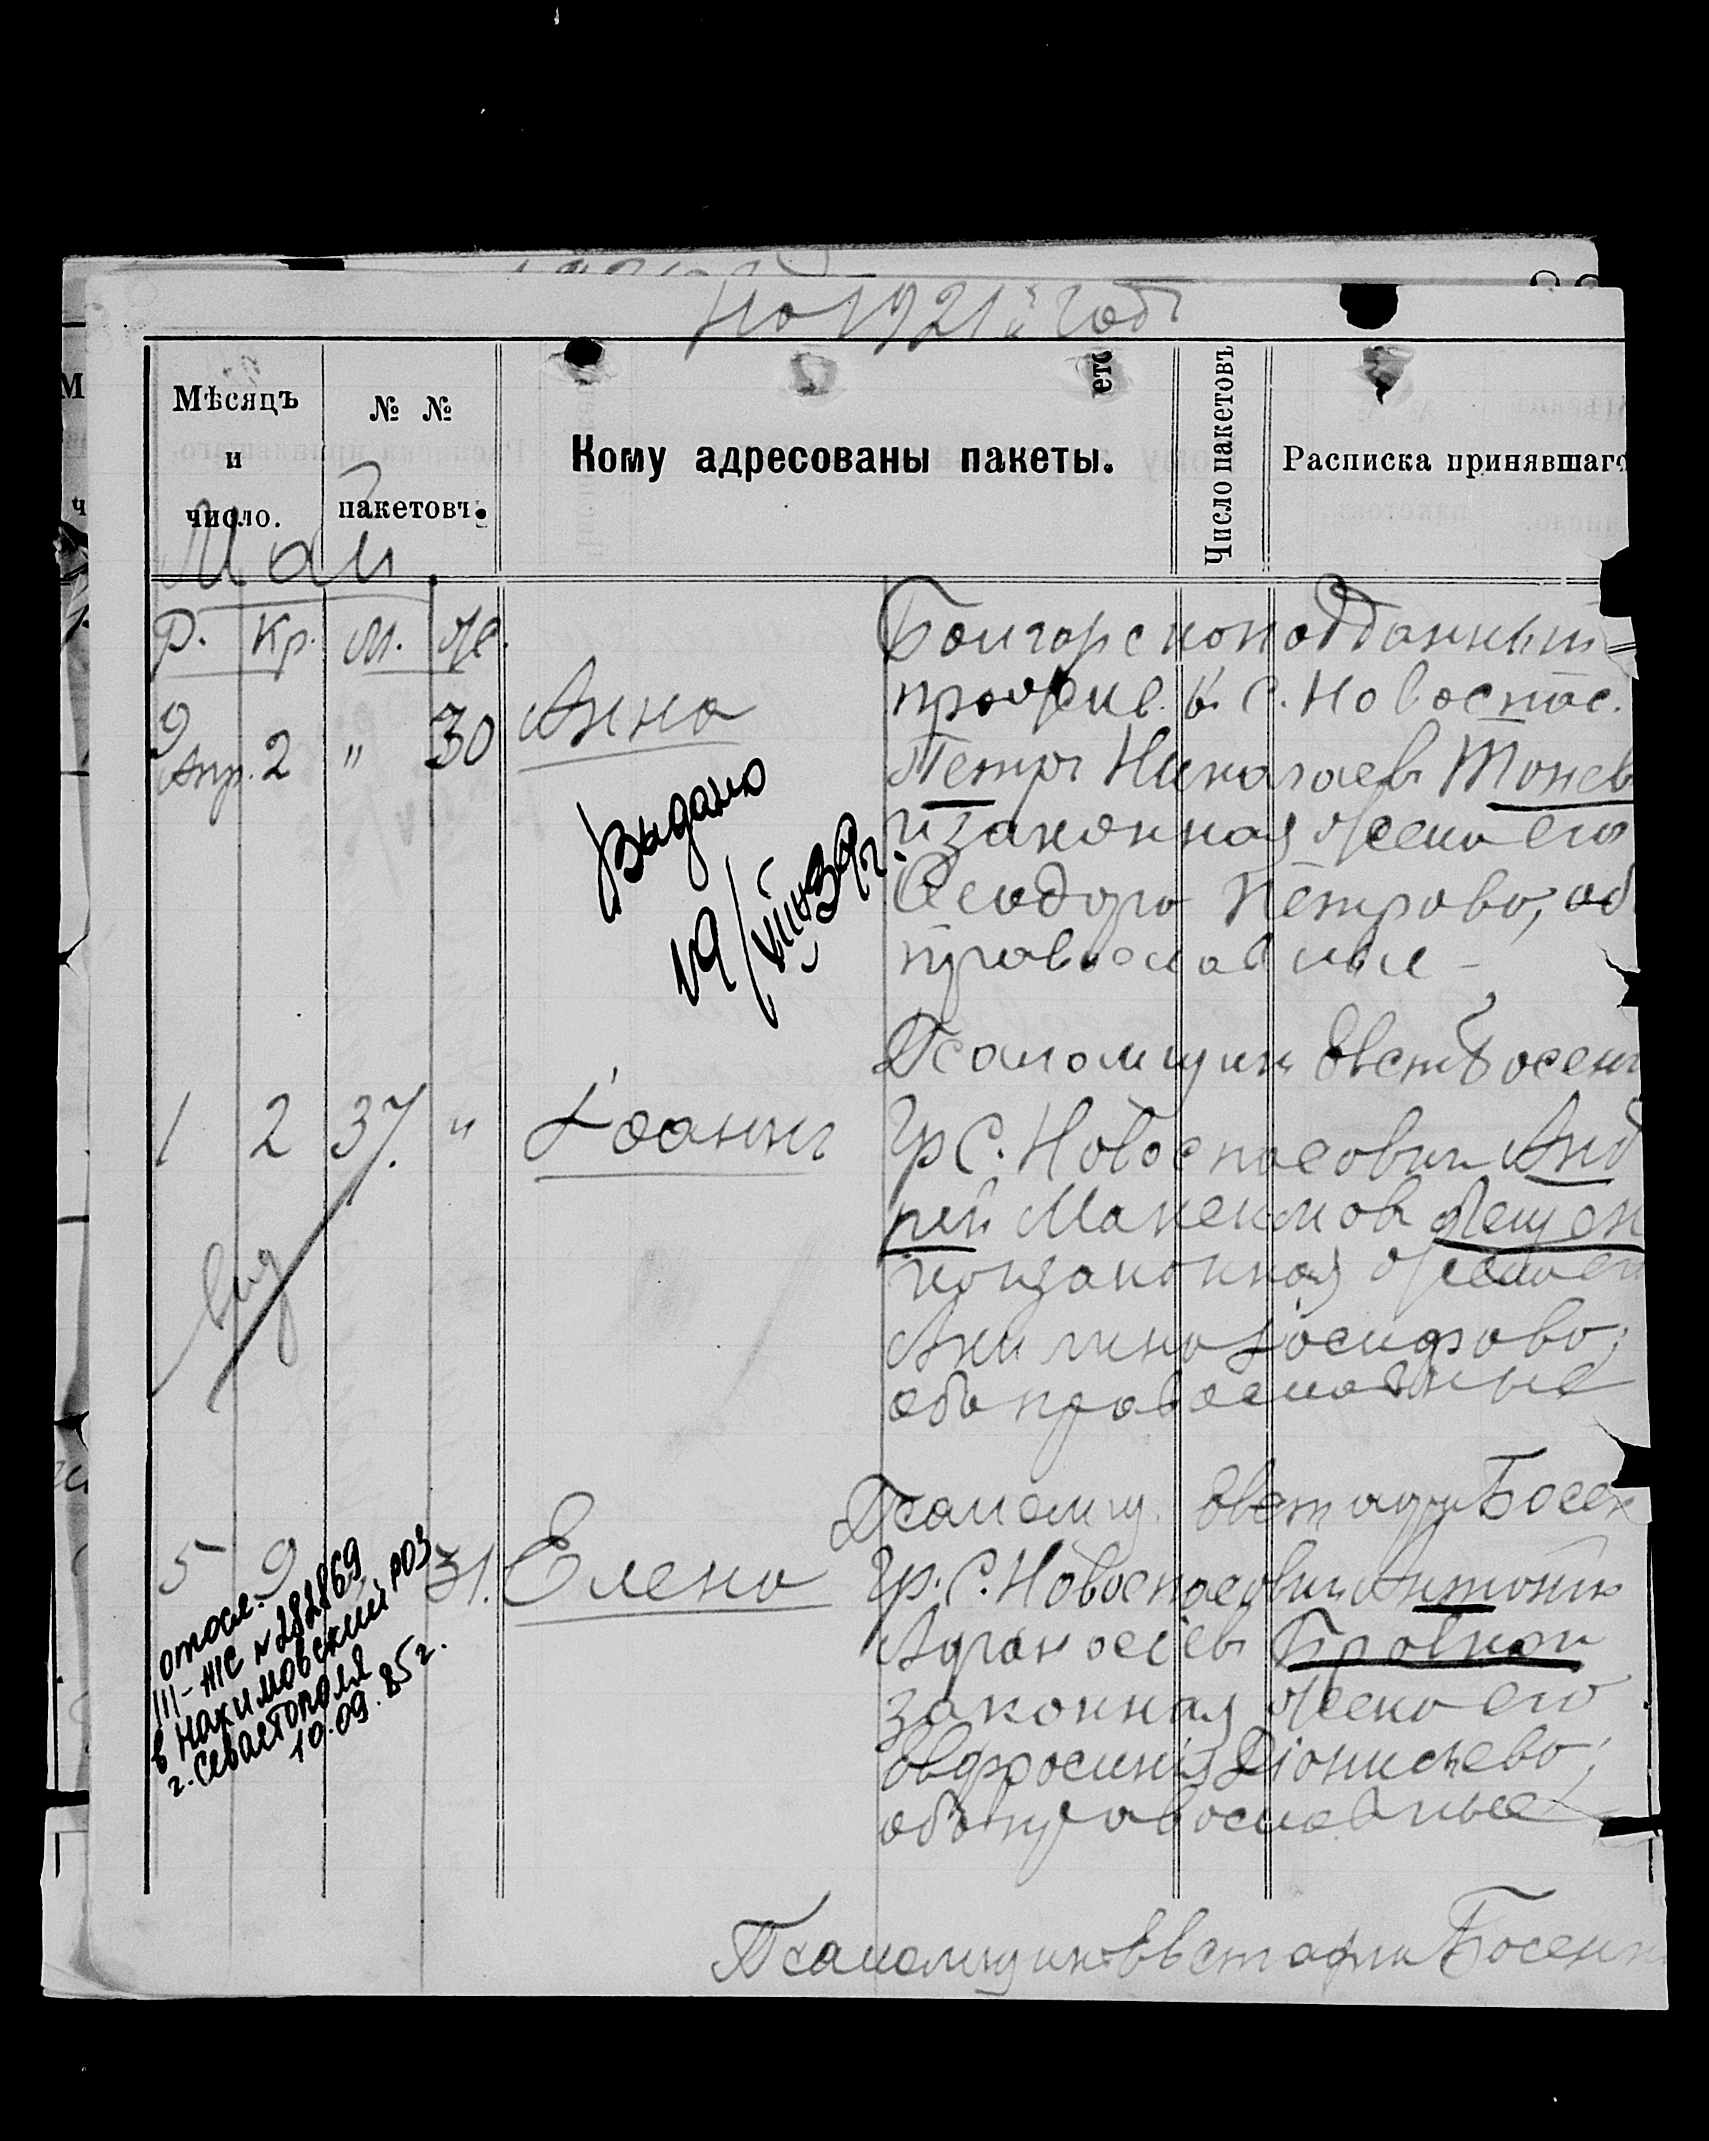 на 1921й годъ
Мѣсяцъ и число.
№ № пакетовъ.
Кому адресованы пакеты.
Число пакетовъ
Расписка принявшаго
Май
Р. Кр. М. Ж.
9 Апр. 2 " 30 Анна
Болгарскоподданный
прожив. в с. Новоспас.
Петръ Николаевъ Тонев
и законная жена его
Ѳеодора Петрова, об
православные
Выдано
19/VIII-39г.
Псаломщикъ Евст Босен
1 2 37. " Іоаннъ
гр. с. Новоспасовки Анд
рей Максимовъ Лещен
ко и законная жена ег
Ангелина Іосифова;
оба православные
Псаломщ. Евстафи Босен
5 9 31. Елена
гр. с. Новоспасовки Антоній
Афанасіевъ Бровко и
законная жена его
Евфросинія Діонисьева;
оба православные
отосл.
III-ЖС № 282869
в Нахимовский РОЗ
г. Севастополя
10.09.85г.
Псаломщикъ Евстафи Босенк